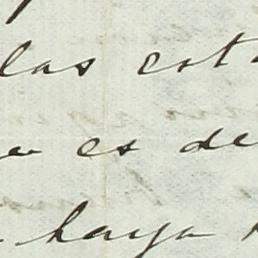 las est
es de
haya